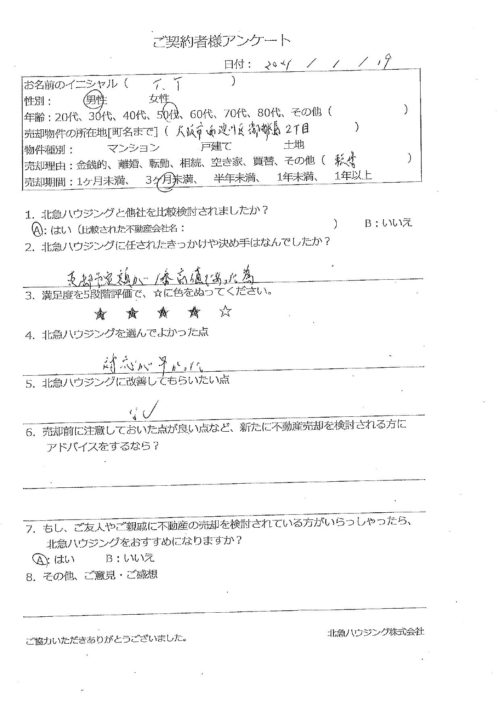 ご契約者様アンケート
日付： 2021 / 1 / 19
お名前のイニシャル（ T.T ）
性別： 男性 女性
年齢：20代、30代、40代、50代、60代、70代、80代、その他（ ）
売却物件の所在地[町名まで]（大阪市西淀川区御幣島2丁目）
物件種別： マンション 戸建て 土地
売却理由：金銭的、離婚、転勤、相続、空き家、買替、その他（ ）
売却期間：1ヶ月未満、 3ヶ月未満、 半年未満、 1年未満、 1年以上
1．北急ハウジングと他社を比較検討されましたか？
A：はい（比較された不動産会社名： ） B：いいえ
2．北急ハウジングに任されたきっかけや決め手はなんでしたか？
1番高値であった為
3．満足度を5段階評価で、☆に色をぬってください。
★ ★ ★ ★ ☆
4．北急ハウジングを選んでよかった点
対応が早かった
5．北急ハウジングに改善してもらいたい点
なし
6．売却前に注意しておいた点が良い点など、新たに不動産売却を検討される方に
アドバイスをするなら？
7．もし、ご友人やご親戚に不動産の売却を検討されている方がいらっしゃったら、
北急ハウジングをおすすめになりますか？
A：はい B：いいえ
8．その他、ご意見・ご感想
ご協力いただきありがとうございました。 北急ハウジング株式会社